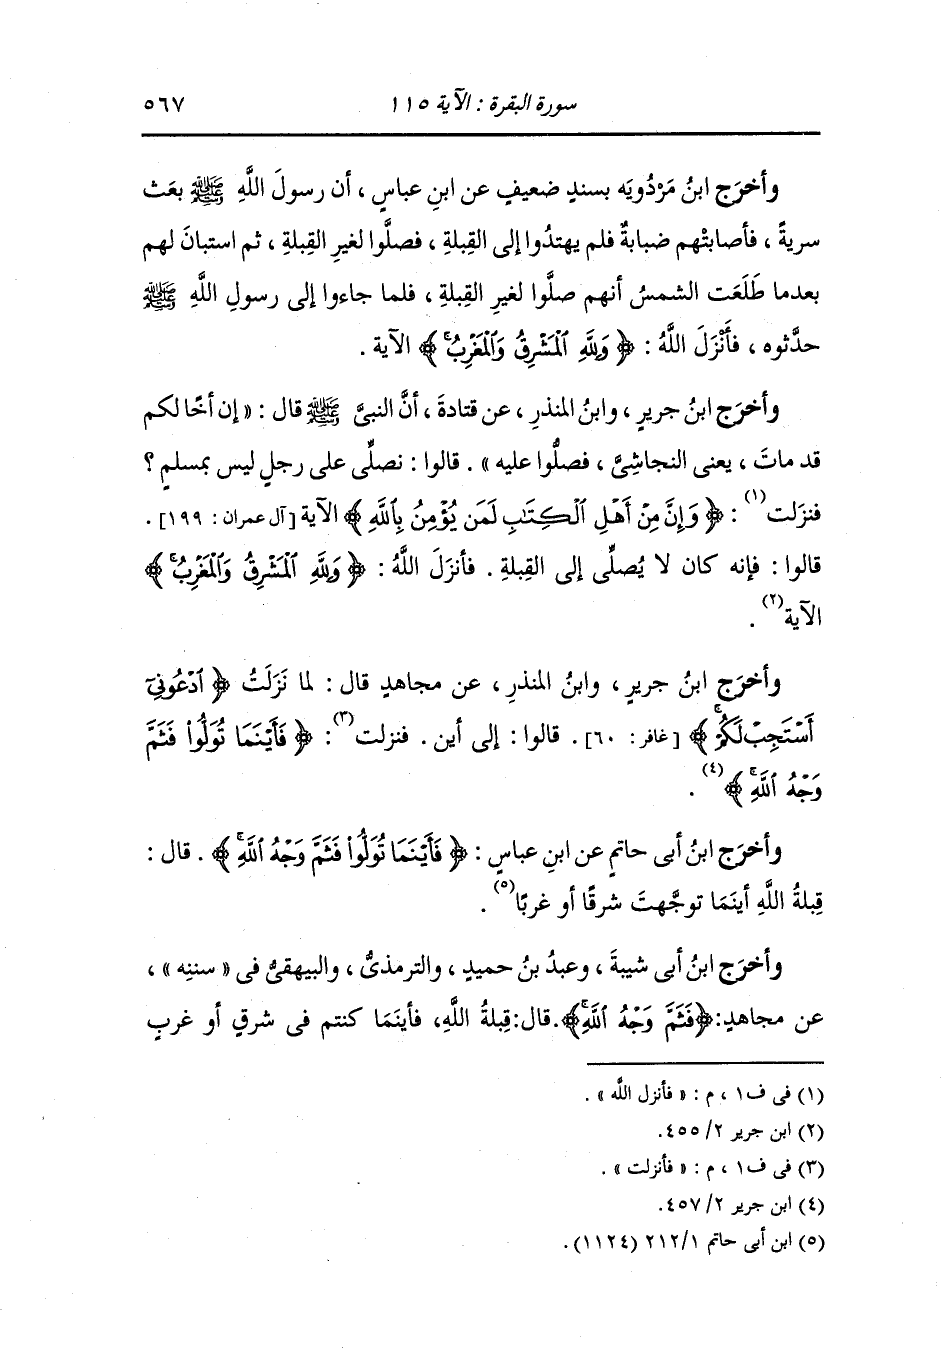 سورة البقرة : الآية ١١٥ ٥٦٧
وأخرَج ابنُ مَرْدُويَه بسندٍ ضعيفٍ عن ابنِ عباسٍ ، أن رسولَ اللَّهِ ﷺ بعَث
سريةً ، فأصابتْهم ضبابةٌ فلم يهتدُوا إلى القِبلةِ ، فصلَّوا لغيرِ القِبلةِ ، ثم استبانَ لهم
بعدما طَلَعَت الشمسُ أنهم صلَّوا لغيرِ القِبلةِ ، فلما جاءوا إلى رسولِ اللَّهِ ﷺ
حدَّثوه ، فأَنْزَلَ اللَّهُ : ﴿ وَلِلَّهِ ٱلْمَشْرِقُ وَٱلْمَغْرِبُ ۚ ﴾ الآية .
وأخرَج ابنُ جريرٍ ، وابنُ المنذرِ ، عن قتادةَ ، أنَّ النبىَّ ﷺ قال : « إن أخًا لكم
قد ماتَ ، يعنى النجاشِىَّ ، فصلُّوا عليه » . قالوا : نصلِّى على رجلٍ ليس بمسلمٍ ؟
فنزَلت(١) : ﴿ وَإِنَّ مِنْ أَهْلِ ٱلْكِتَٰبِ لَمَن يُؤْمِنُ بِٱللَّهِ ﴾ الآية [آل عمران : ١٩٩] .
قالوا : فإنه كان لا يُصلِّى إلى القِبلةِ . فأنزَلَ اللَّهُ : ﴿ وَلِلَّهِ ٱلْمَشْرِقُ وَٱلْمَغْرِبُ ۚ ﴾
الآية(٢) .
وأخرَج ابنُ جريرٍ ، وابنُ المنذرِ ، عن مجاهدٍ قال : لما نَزَلَتْ ﴿ ٱدْعُونِىٓ
أَسْتَجِبْ لَكُمْ ۚ ﴾ [ غافر : ٦٠] . قالوا : إلى أين . فنزلت(٣) : ﴿ فَأَيْنَمَا تُوَلُّوا۟ فَثَمَّ
وَجْهُ ٱللَّهِ ۚ ﴾(٤) .
وأخرَج ابنُ أبى حاتمٍ عن ابنِ عباسٍ : ﴿ فَأَيْنَمَا تُوَلُّوا۟ فَثَمَّ وَجْهُ ٱللَّهِ ۚ ﴾ . قال :
قِبلةُ اللَّهِ أينَمَا توجَّهتَ شرقًا أو غربًا(٥) .
وأخرَج ابنُ أبى شيبةَ ، وعبدُ بنُ حميدٍ ، والترمذىُّ ، والبيهقىُّ فى « سننِه » ،
عن مجاهدٍ : ﴿فَثَمَّ وَجْهُ ٱللَّهِ ۚ﴾. قال : قِبلةُ اللَّهِ، فأينَمَا كنتم فى شرقٍ أو غربٍ
(١) فى ف١ ، م : « فأنزل اللَّه » .
(٢) ابن جرير ٢/ ٤٥٥.
(٣) فى ف١ ، م : « فأنزلت » .
(٤) ابن جرير ٢/ ٤٥٧.
(٥) ابن أبى حاتم ٢١٢/١ (١١٢٤).